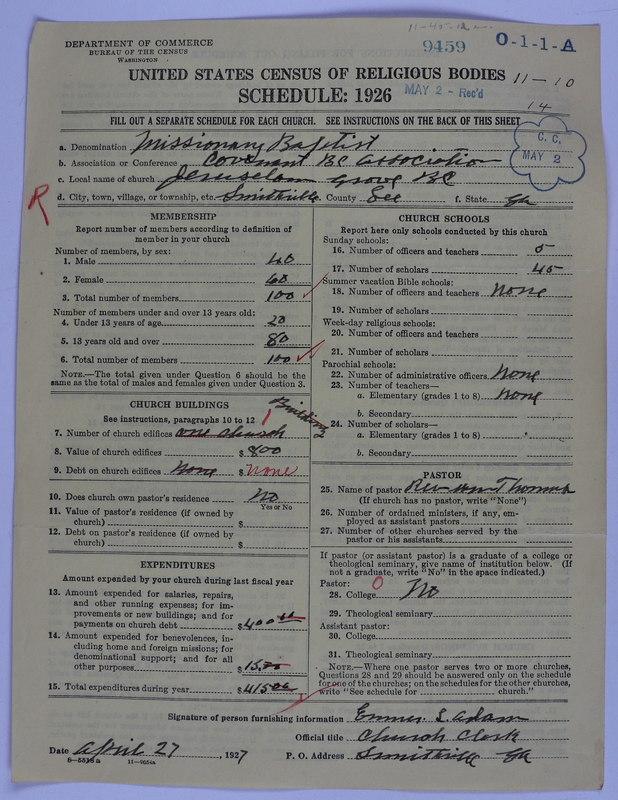 DEPARTMENT OF COMMERCE
BUREAU OF THE CENSUS
WASHINGTON
9459
O-1-1-A
UNITED STATES CENSUS OF RELIGIOUS BODIES
11-10
SCHEDULE: 1926
MAY 2 - Rec'd
14
FILL OUT A SEPARATE SCHEDULE FOR EACH CHURCH. SEE INSTRUCTIONS ON THE BACK OF THIS SHEET
C. C.
MAY 2
a. Denomination Missionary Baptist
b. Association or Conference Covenant BC association
c. Local name of church Jeruselam Grove BC
R
d. City, town, village, or township, etc. Smithville County Lee f. State Ga
MEMBERSHIP
Report number of members according to definition of member in your church
Number of members, by sex:
1. Male 40
2. Female 60
3. Total number of members 100
Number of members under and over 13 years old:
4. Under 13 years of age 20
5. 13 years old and over 80
6. Total number of members 100
NOTE.—The total given under Question 6 should be the
same as the total of males and females given under Question 3.
CHURCH BUILDINGS
See instructions, paragraphs 10 to 12
1 Building
7. Number of church edifices one church
8. Value of church edifices $ 800
9. Debt on church edifices None $ None
10. Does church own pastor's residence No
Yes or No
11. Value of pastor's residence (if owned by
church) $
12. Debt on pastor's residence (if owned by
church) $
EXPENDITURES
Amount expended by your church during last fiscal year
13. Amount expended for salaries, repairs,
and other running expenses; for im-
provements or new buildings; and for
payments on church debt $ 400 00
14. Amount expended for benevolences, in-
cluding home and foreign missions; for
denominational support; and for all
other purposes $ 15.00
15. Total expenditures during year $ 415 00
CHURCH SCHOOLS
Report here only schools conducted by this church
Sunday schools:
16. Number of officers and teachers 5
17. Number of scholars 45
Summer vacation Bible schools:
18. Number of officers and teachers None
19. Number of scholars
Week-day religious schools:
20. Number of officers and teachers
21. Number of scholars
Parochial schools:
22. Number of administrative officers None
23. Number of teachers—
a. Elementary (grades 1 to 8) None
b. Secondary
24. Number of scholars—
a. Elementary (grades 1 to 8)
b. Secondary
PASTOR
25. Name of pastor Rev Wm Thomas
(If church has no pastor, write "None")
26. Number of ordained ministers, if any, em-
ployed as assistant pastors
27. Number of other churches served by the
pastor or his assistants
If pastor (or assistant pastor) is a graduate of a college or
theological seminary, give name of institution below. (If
not a graduate, write "No" in the space indicated.)
Pastor: 0
28. College No
29. Theological seminary
Assistant pastor:
30. College
31. Theological seminary
NOTE.—Where one pastor serves two or more churches,
Questions 28 and 29 should be answered only on the schedule
for one of the churches; on the schedules for the other churches,
write "See schedule for church."
Signature of person furnishing information Emmer L adam
Official title Church Clerk
Date April 27, 1927
P. O. Address Smithville Ga
8-5518 a 11-9054a